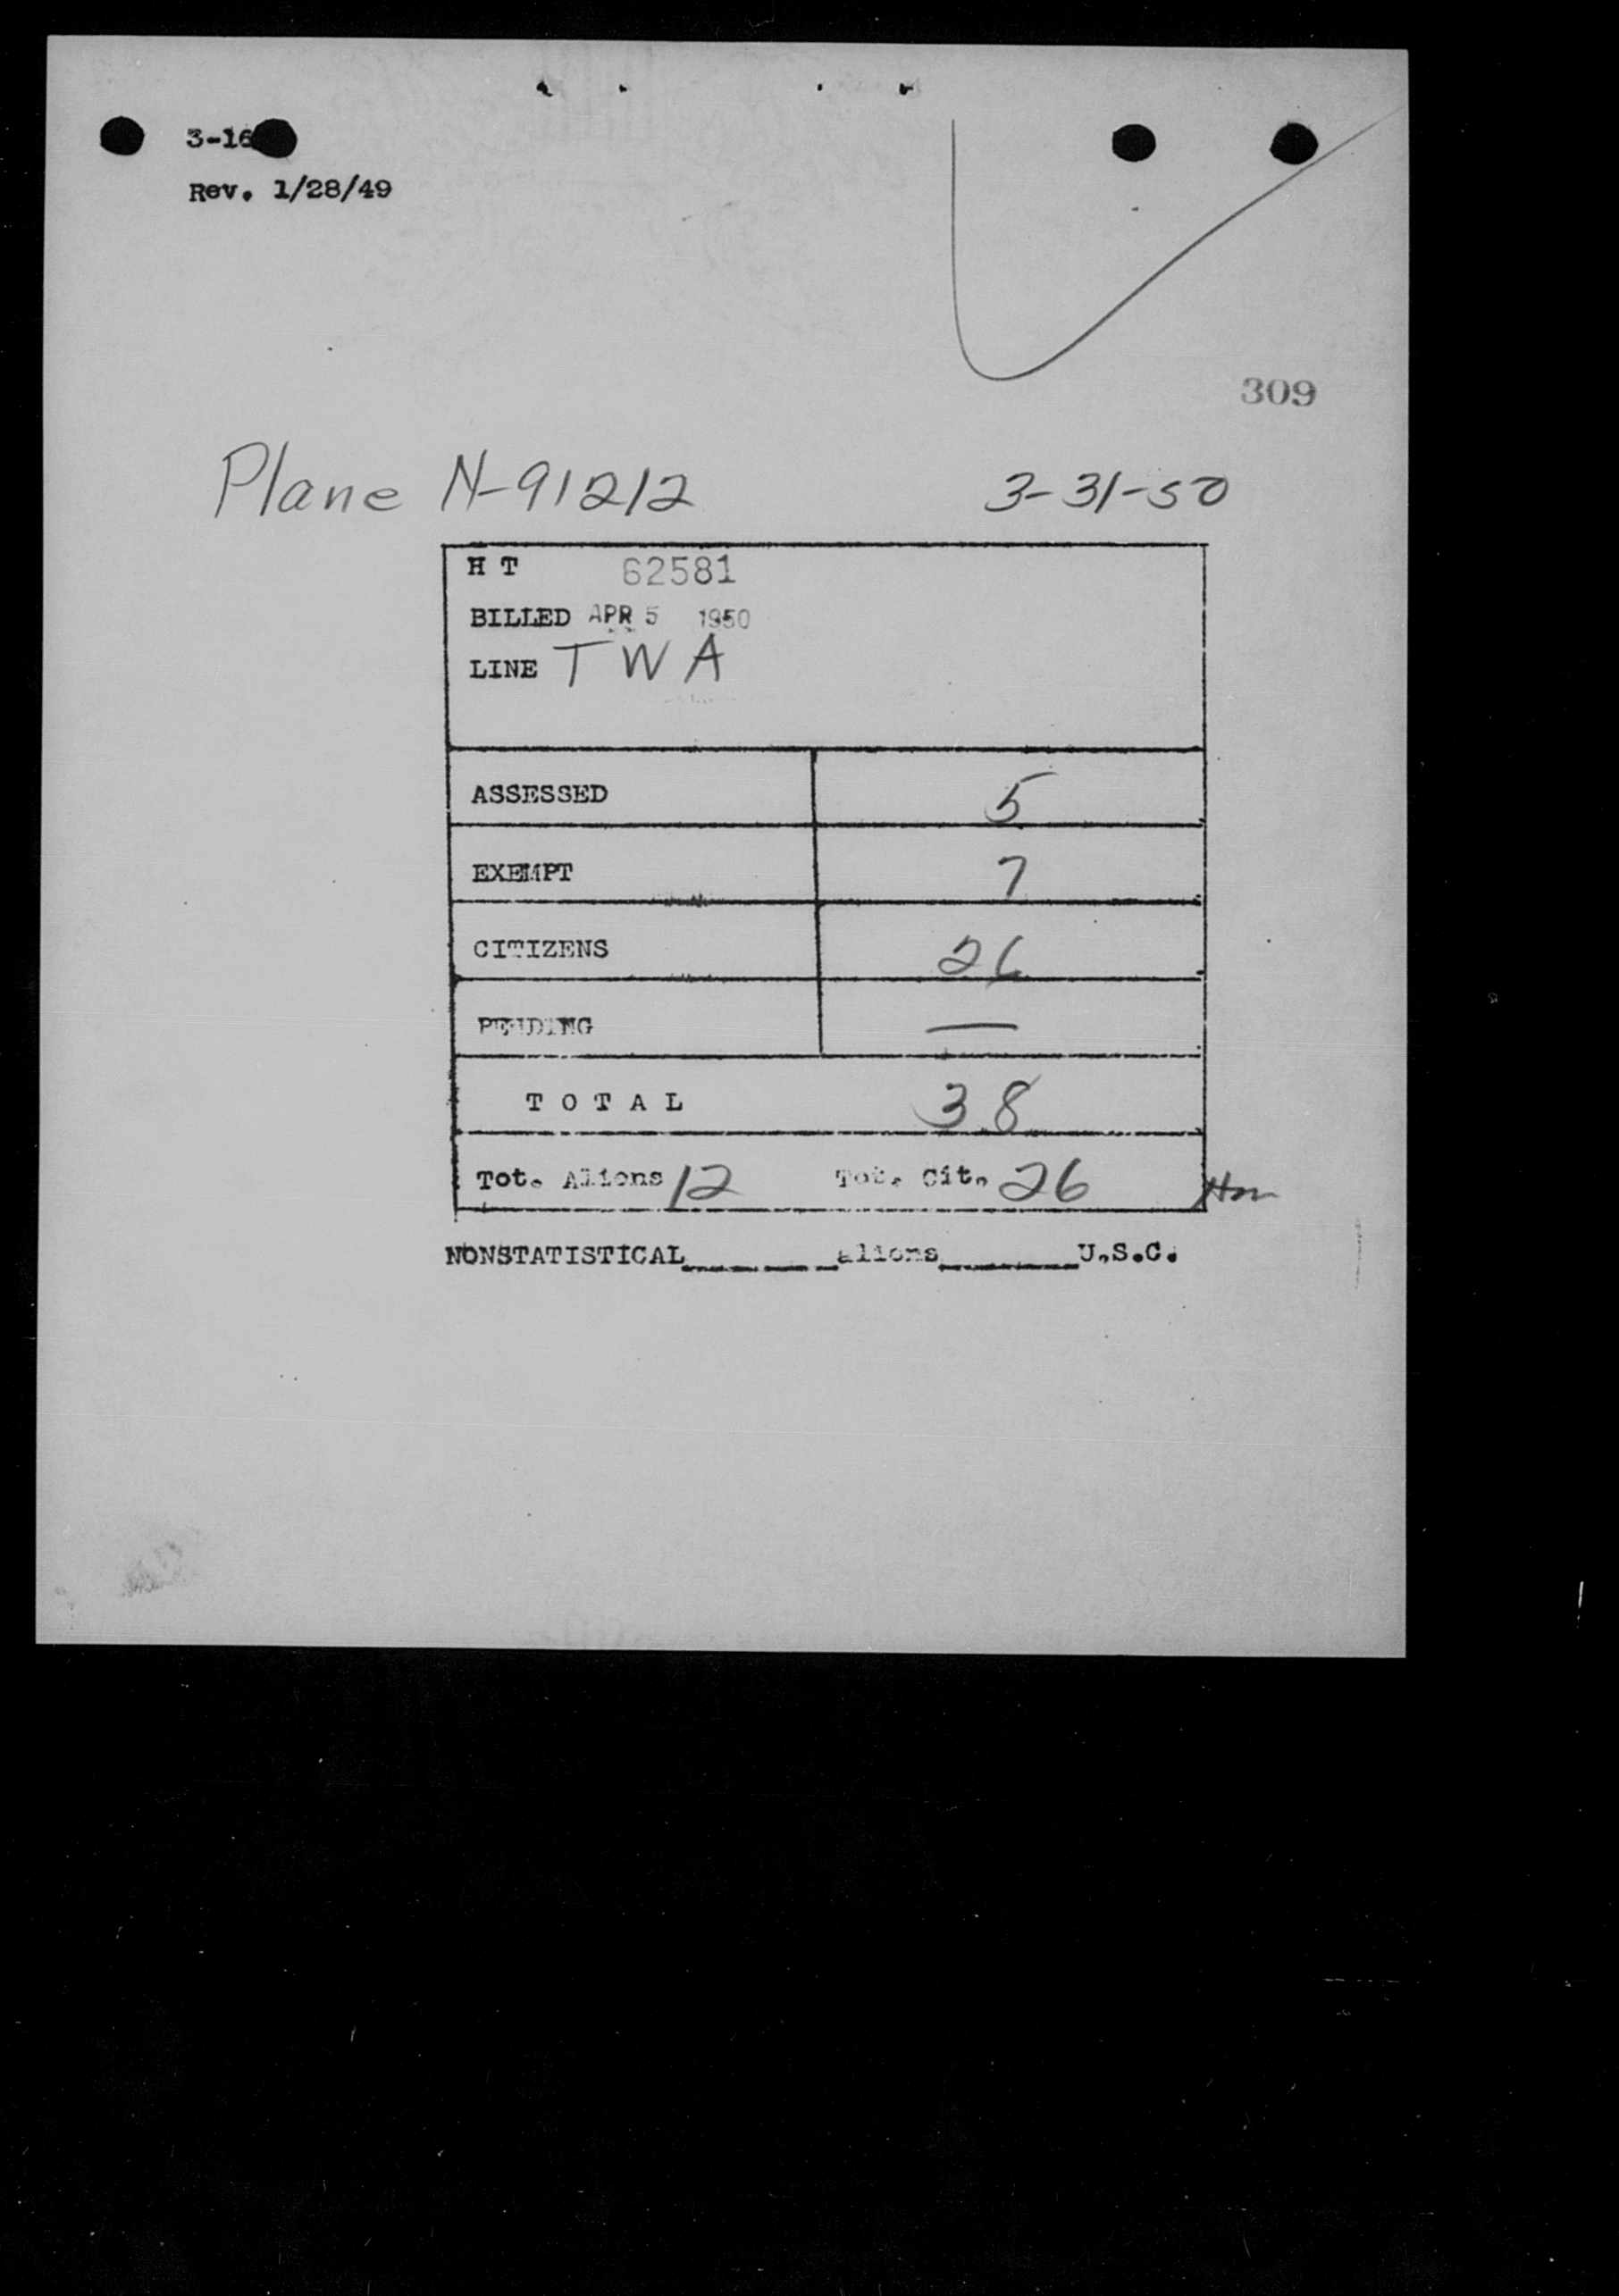 3-16
Rev. 1/28/49
309
Plane N-91212 3-31-50
H T 62581
BILLED APR 5 1950
LINE TWA
ASSESSED 5
EXEMPT 7
CITIZENS 26
PENDING —
T O T A L 38
Tot. Aliens 12 Tot. Cit. 26
NONSTATISTICAL________aliens________U.S.C.